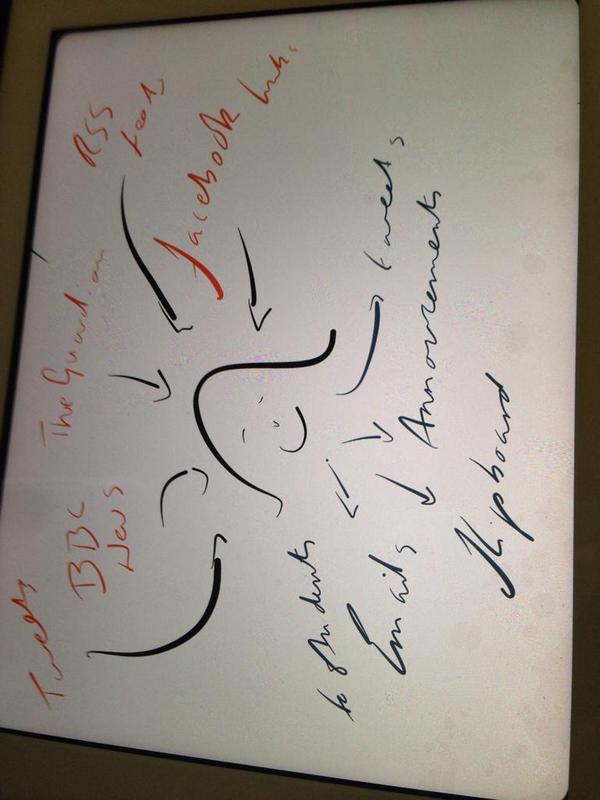 Tweets
BBC
News
The Guardian
RSS
feeds
facebook links
to students
Emails
Announcements
tweets
Flipboard